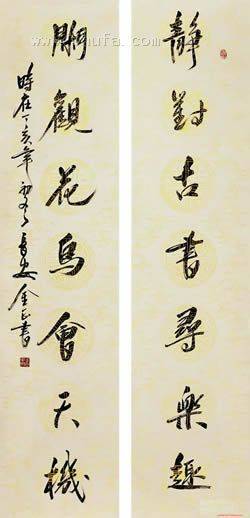 靜對古書尋樂趣
閒觀花鳥會天機
時在丁亥年 長安 金正書